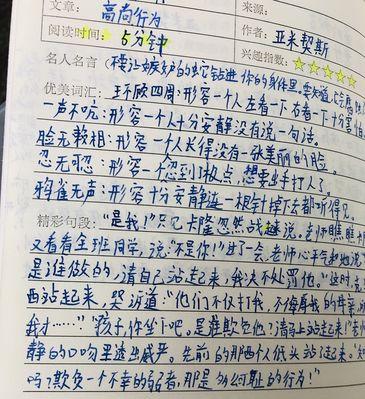 文章： 高尚行为 来源：
阅读时间： 5分钟 作者：亚米契斯
兴趣指数：☆☆☆☆☆
名人名言 (不要让嫉妒的蛇钻进你的身体里,要知道,它会
优美词汇：环顾四周:形容一个人左看一下右看一下十分害怕
一声不吭:形容一个人十分安静没有说一句话。
脸无赖相:形容一个人长得没有一张美丽的脸。
忍无可忍:形容一个忍到了极点,想要出手打人了。
鸦雀无声:形容十分安静连一根针掉下去都听得见。
精彩句段："是我!"只见卡隆忽然战 说。老师瞧瞧卡隆
又看看全班同学,说:"不是你!"过了一会,老师心平气和地说
是谁做的,请自己站起来,我决不处罚他。"这时,克
西站起来,哭诉道:"他们不仅打我,不侮辱我的母亲,
我才……""孩子,你坐下吧。是谁欺负他?请马上站起来!"老师
静的口吻里透出威严。先前的那四个人低头站了起来。"知
吗?欺负一个不幸的弱者,那是多么可耻的行为!"